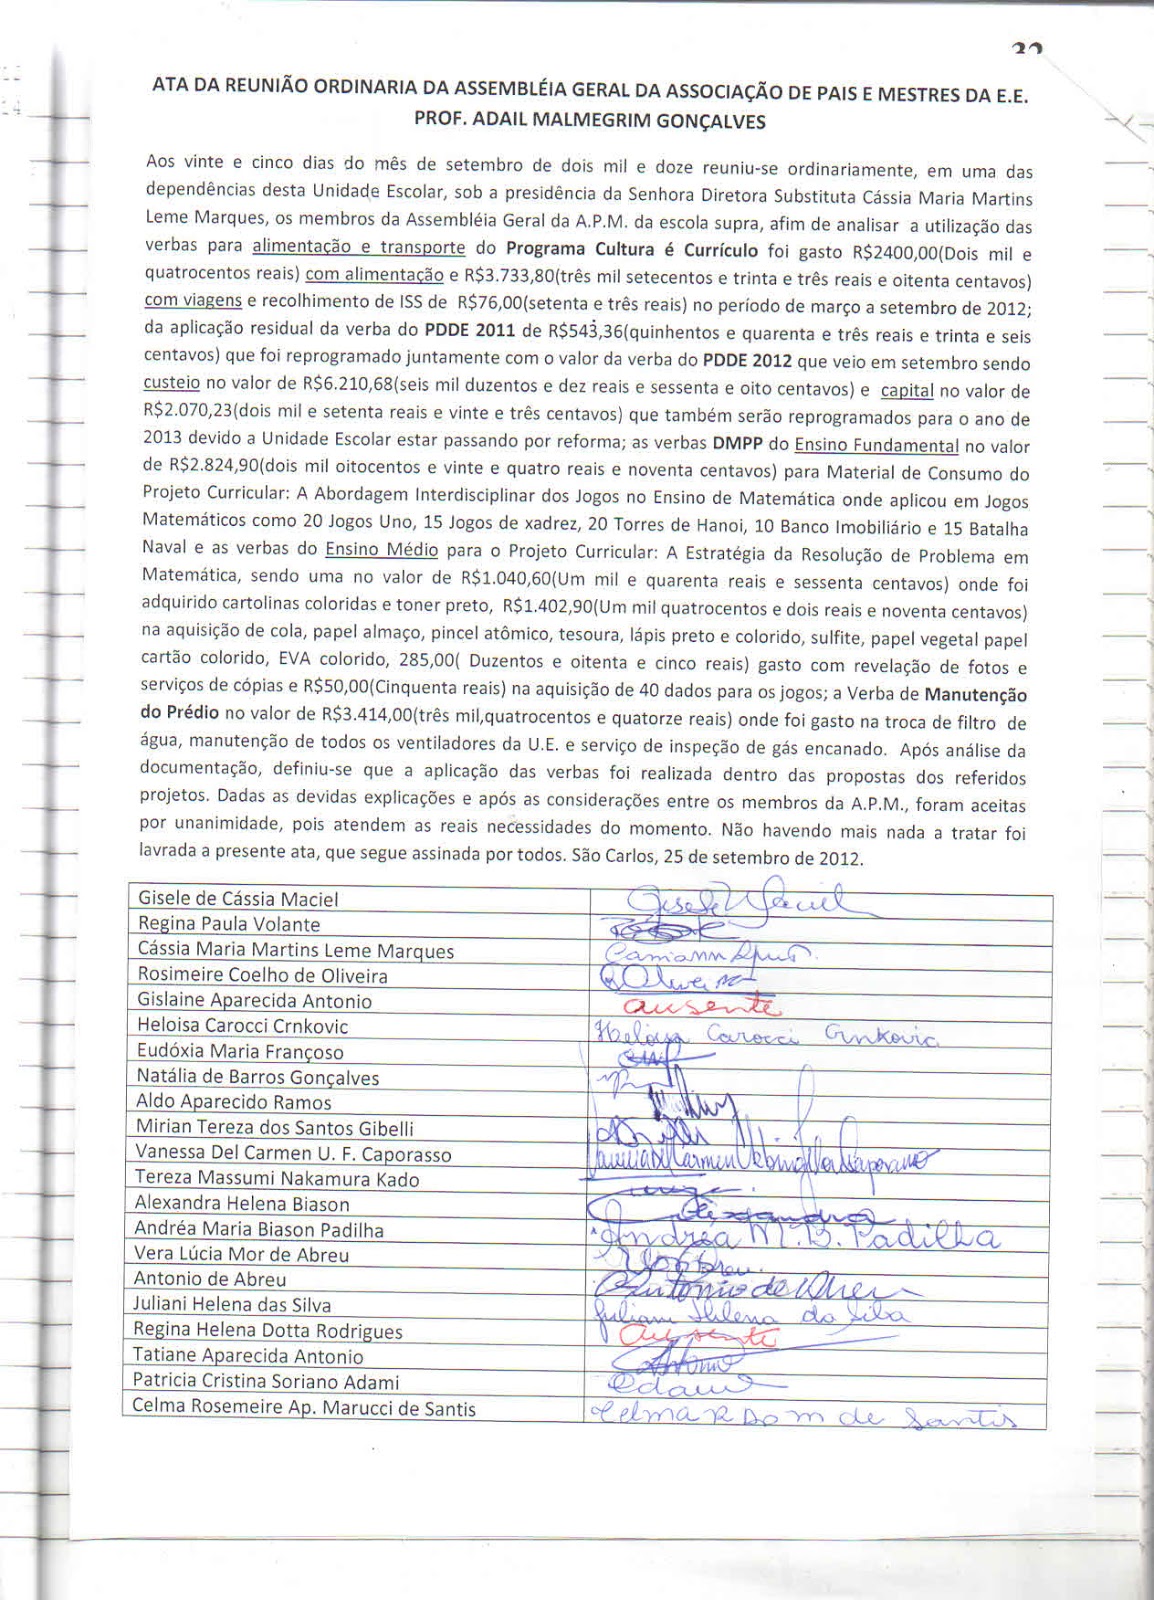 ATA DA REUNIÃO ORDINARIA DA ASSEMBLÉIA GERAL DA ASSOCIAÇÃO DE PAIS E MESTRES DA E.E.
PROF. ADAIL MALMEGRIM GONÇALVES
Aos vinte e cinco dias do mês de setembro de dois mil e doze reuniu-se ordinariamente, em uma das
dependências desta Unidade Escolar, sob a presidência da Senhora Diretora Substituta Cássia Maria Martins
Leme Marques, os membros da Assembléia Geral da A.P.M. da escola supra, afim de analisar a utilização das
verbas para alimentação e transporte do Programa Cultura é Currículo foi gasto R$2400,00(Dois mil e
quatrocentos reais) com alimentação e R$3.733,80(três mil setecentos e trinta e três reais e oitenta centavos)
com viagens e recolhimento de ISS de R$76,00(setenta e três reais) no período de março a setembro de 2012;
da aplicação residual da verba do PDDE 2011 de R$543,36(quinhentos e quarenta e três reais e trinta e seis
centavos) que foi reprogramado juntamente com o valor da verba do PDDE 2012 que veio em setembro sendo
custeio no valor de R$6.210,68(seis mil duzentos e dez reais e sessenta e oito centavos) e capital no valor de
R$2.070,23(dois mil e setenta reais e vinte e três centavos) que também serão reprogramados para o ano de
2013 devido a Unidade Escolar estar passando por reforma; as verbas DMPP do Ensino Fundamental no valor
de R$2.824,90(dois mil oitocentos e vinte e quatro reais e noventa centavos) para Material de Consumo do
Projeto Curricular: A Abordagem Interdisciplinar dos Jogos no Ensino de Matemática onde aplicou em Jogos
Matemáticos como 20 Jogos Uno, 15 Jogos de xadrez, 20 Torres de Hanoi, 10 Banco Imobiliário e 15 Batalha
Naval e as verbas do Ensino Médio para o Projeto Curricular: A Estratégia da Resolução de Problema em
Matemática, sendo uma no valor de R$1.040,60(Um mil e quarenta reais e sessenta centavos) onde foi
adquirido cartolinas coloridas e toner preto, R$1.402,90(Um mil quatrocentos e dois reais e noventa centavos)
na aquisição de cola, papel almaço, pincel atômico, tesoura, lápis preto e colorido, sulfite, papel vegetal papel
cartão colorido, EVA colorido, 285,00( Duzentos e oitenta e cinco reais) gasto com revelação de fotos e
serviços de cópias e R$50,00(Cinquenta reais) na aquisição de 40 dados para os jogos; a Verba de Manutenção
do Prédio no valor de R$3.414,00(três mil,quatrocentos e quatorze reais) onde foi gasto na troca de filtro de
água, manutenção de todos os ventiladores da U.E. e serviço de inspeção de gás encanado. Após análise da
documentação, definiu-se que a aplicação das verbas foi realizada dentro das propostas dos referidos
projetos. Dadas as devidas explicações e após as considerações entre os membros da A.P.M., foram aceitas
por unanimidade, pois atendem as reais necessidades do momento. Não havendo mais nada a tratar foi
lavrada a presente ata, que segue assinada por todos. São Carlos, 25 de setembro de 2012.
Gisele de Cássia Maciel Gisele Maciel
Regina Paula Volante
Cássia Maria Martins Leme Marques
Rosimeire Coelho de Oliveira ROliveira
Gislaine Aparecida Antonio ausente
Heloisa Carocci Crnkovic Heloisa Carocci Crnkovic
Eudóxia Maria Françoso
Natália de Barros Gonçalves
Aldo Aparecido Ramos
Mirian Tereza dos Santos Gibelli
Vanessa Del Carmen U. F. Caporasso
Tereza Massumi Nakamura Kado
Alexandra Helena Biason Alexandra
Andréa Maria Biason Padilha Andréa M. B. Padilha
Vera Lúcia Mor de Abreu
Antonio de Abreu Antonio de Abreu
Juliani Helena das Silva Juliani Helena da Silva
Regina Helena Dotta Rodrigues ausente
Tatiane Aparecida Antonio
Patricia Cristina Soriano Adami
Celma Rosemeire Ap. Marucci de Santis Celma R Ap M de Santis